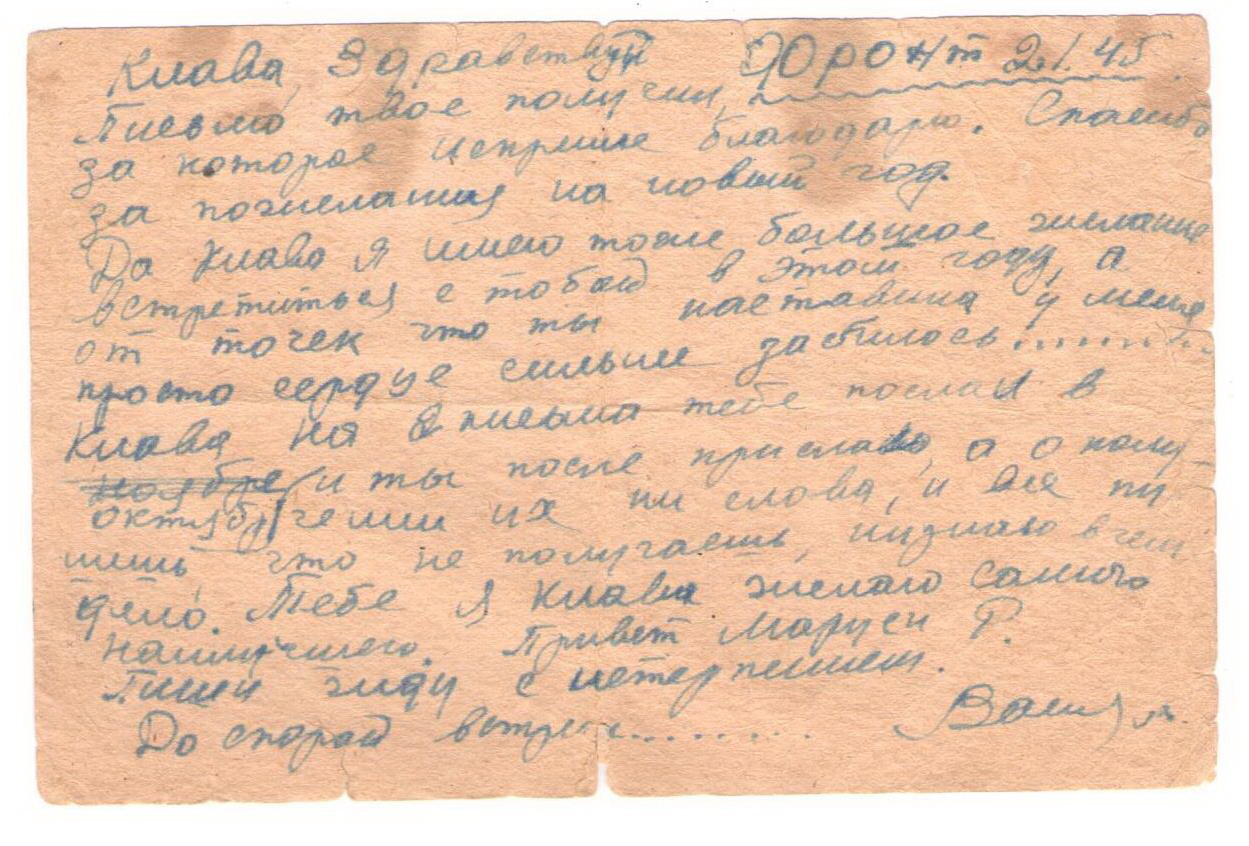 Клава, Здравствуй Фронт 2.1.45
Письмо твое получил,
за которое искрине благодарю. Спасибо
за пожелания на новый год.
Да Клава я имею тоже большое желание
встретиться с тобой в этом году, а
от точек что ты наставила у меня
просто сердце сильне забилось..........
Клава на 2 письма тебе послал в
ноябре и ты после прислала, а о полу-
октябр чении их ни слова, и все пи
шешь что не получаешь, низнаю в чем
дело. Тебе я Клава желаю самого
наилучшего. Привет Маруси Р.
Пиши жду с нетерпением.
До скорой встречи.........